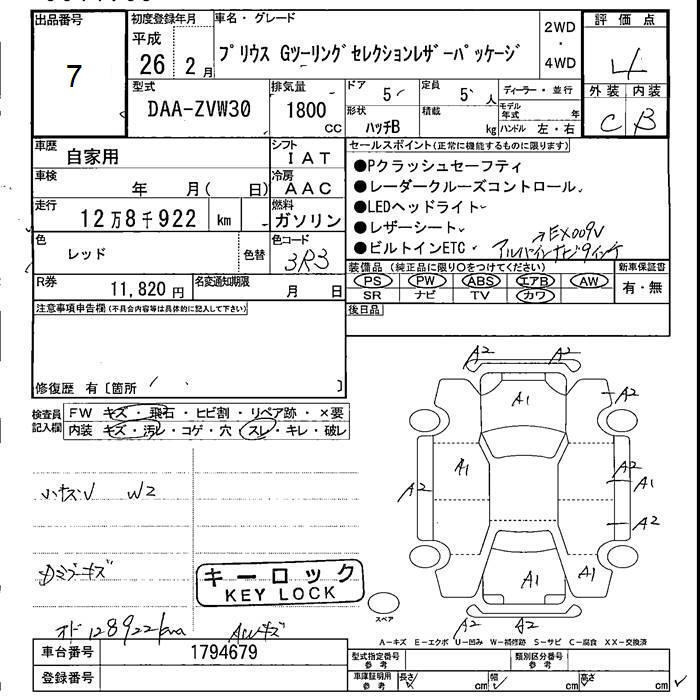 出品番号 初度登録年月 車名・グレード 2WD ・ 4WD 評価点
7 平成 26 2月 プリウス GツーリングセレクションレザーパッケージV 4
型式 DAA-ZVW30 排気量 1800 CC ドア 5 定員 5 人 ディーラー・並行 外装 内装
形状 ハッチB 積載 kg モデル年式 年 ハンドル 左・右 C B
車歴 自家用 シフト IAT セールスポイント(正常に機能するものに限ります)
車検 年 月( 日) 冷房 AAC ●Pクラッシュセーフティ
走行 12万8千922 km 燃料 ガソリン ●レーダークルーズコントロール
●LEDヘッドライト
●レザーシート →EX009V
色 レッド 色替 色コード 3R3 ●ビルトインETC アルパインナビ9インチ
装備品(純正品に限り○をつけてください) 新車保証書
R券 11,820円 名変通知期限 月 日 PS PW ABS エアB AW 有・無
SR ナビ TV カワ
注意事項申告欄(不具合内容等は具体的に記入して下さい) 後日品
修復歴 有〔箇所 〕
検査員記入欄 FW キズ・飛石・ヒビ割・リペア跡・×要
内装 キズ・汚レ・コゲ・穴・スレ・キレ・破レ
A2 A2
A1 A2
A2 A1 A2 A1
A2
A1 A1
A2 A2
W2
キーロック
KEY LOCK
スペア
オド128922km AWキズ
A-キズ E-エクボ U-凹み W-補修跡 S-サビ C-腐食 XX-交換済
車台番号 1794679 型式指定番号 参考 類別区分番号 参考
登録番号 車庫証明用 参考 長さ cm 幅 cm 高さ cm